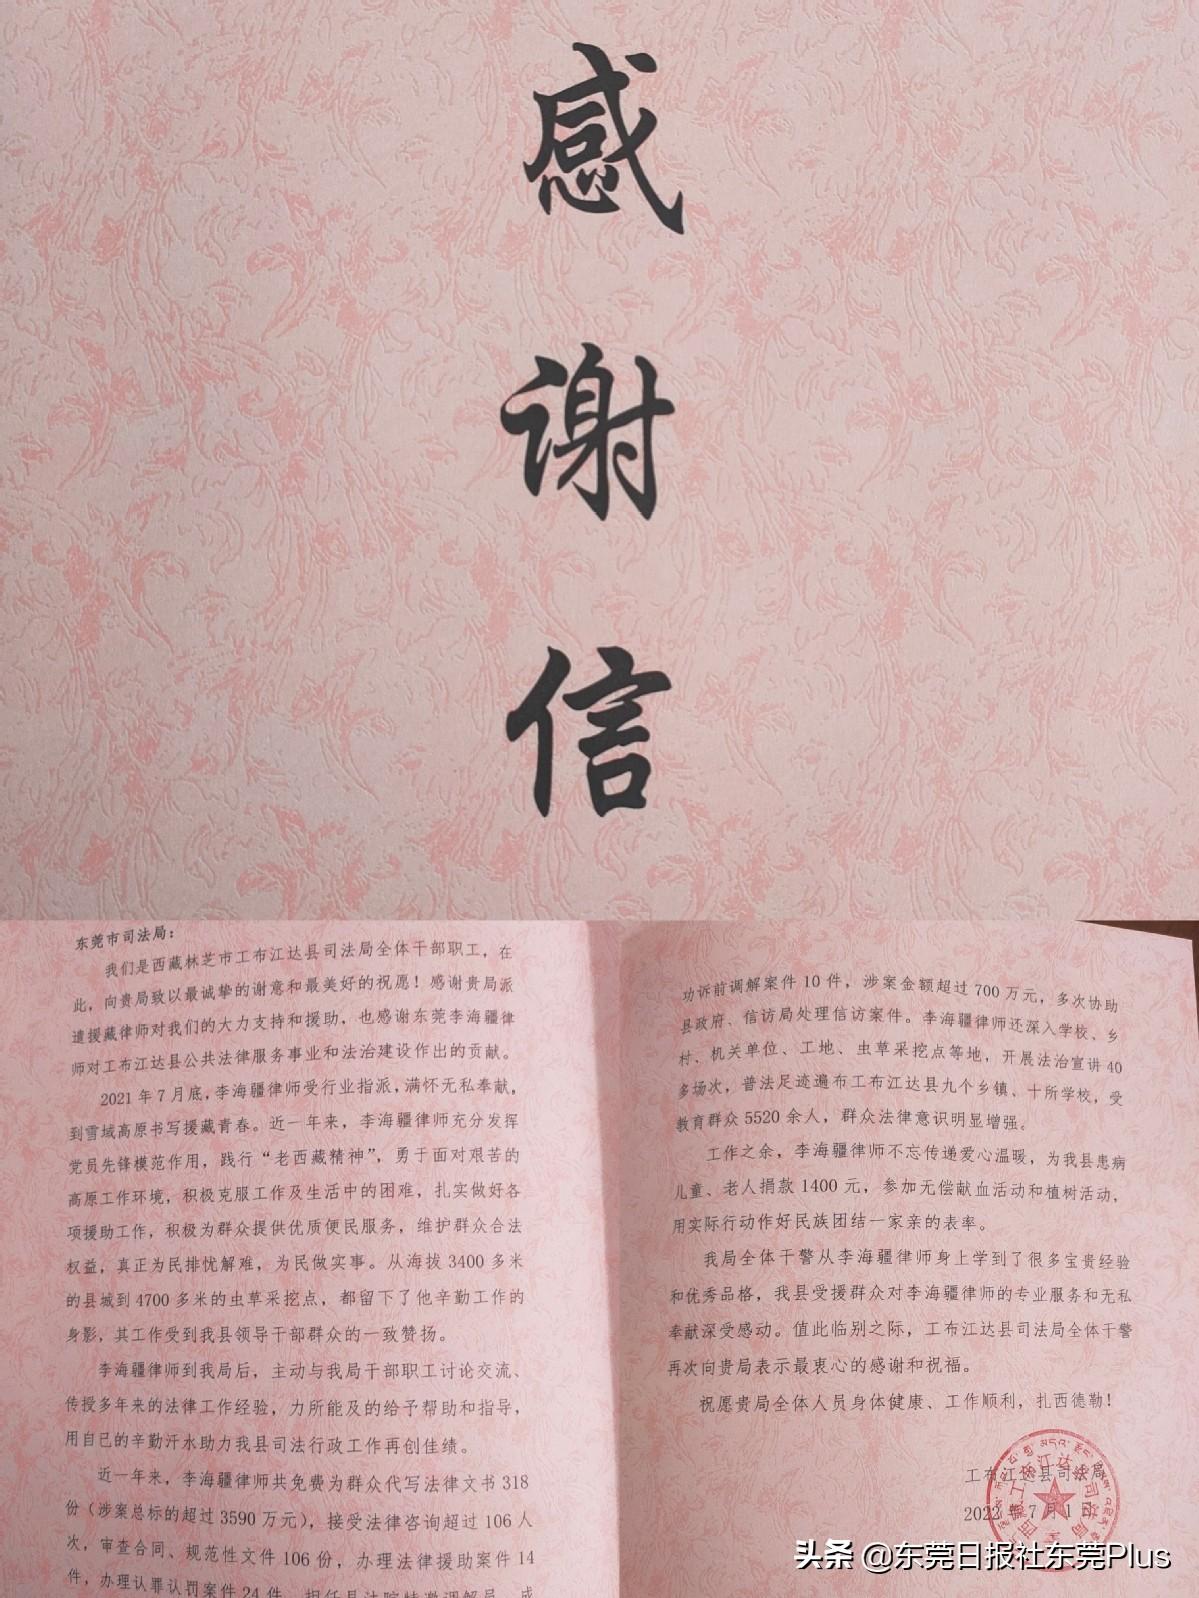 感
谢
信
东莞市司法局：
我们是西藏林芝市工布江达县司法局全体干部职工，在
此，向贵局致以最诚挚的谢意和最美好的祝愿！感谢贵局派
遣援藏律师对我们的大力支持和援助，也感谢东莞李海疆律
师对工布江达县公共法律服务事业和法治建设作出的贡献。
2021年7月底，李海疆律师受行业指派，满怀无私奉献，
到雪域高原书写援藏青春。近一年来，李海疆律师充分发挥
党员先锋模范作用，践行“老西藏精神”，勇于面对艰苦的
高原工作环境，积极克服工作及生活中的困难，扎实做好各
项援助工作，积极为群众提供优质便民服务，维护群众合法
权益，真正为民排忧解难，为民做实事。从海拔3400多米
的县城到4700多米的虫草采挖点，都留下了他辛勤工作的
身影，其工作受到我县领导干部群众的一致赞扬。
李海疆律师到我局后，主动与我局干部职工讨论交流、
传授多年来的法律工作经验，力所能及的给予帮助和指导，
用自己的辛勤汗水助力我县司法行政工作再创佳绩。
近一年来，李海疆律师共免费为群众代写法律文书318
份（涉案总标的超过3590万元），接受法律咨询超过106人
次，审查合同、规范性文件106份，办理法律援助案件14
件，办理认罪认罚案件24件，担任县法院特邀调解员，成
功诉前调解案件10件，涉案金额超过700万元，多次协助
县政府、信访局处理信访案件。李海疆律师还深入学校、乡
村、机关单位、工地、虫草采挖点等地，开展法治宣讲40
多场次，普法足迹遍布工布江达县九个乡镇、十所学校，受
教育群众5520余人，群众法律意识明显增强。
工作之余，李海疆律师不忘传递爱心温暖，为我县患病
儿童、老人捐款1400元，参加无偿献血活动和植树活动，
用实际行动作好民族团结一家亲的表率。
我局全体干警从李海疆律师身上学到了很多宝贵经验
和优秀品格，我县受援群众对李海疆律师的专业服务和无私
奉献深受感动。值此临别之际，工布江达县司法局全体干警
再次向贵局表示最衷心的感谢和祝福。
祝愿贵局全体人员身体健康、工作顺利，扎西德勒！
工布江达县司法局
2022年7月1日
头条 @东莞日报社东莞Plus